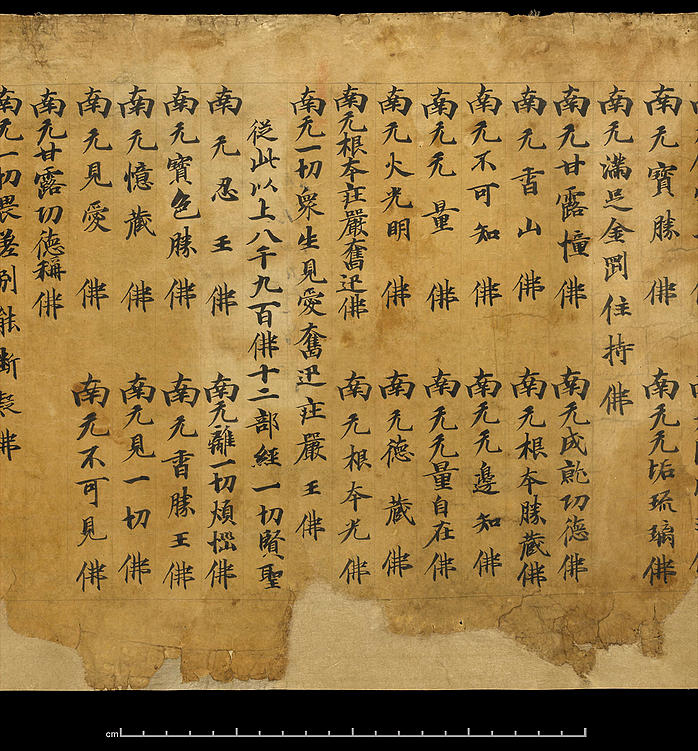 南无寶勝佛　南无无垢琉璃佛
南无滿足金罡住持佛
南无甘露憧佛　南无成就功德佛
南无香山佛　南无根本勝藏佛
南无不可知佛　南无无邊知佛
南无无量佛　南无无量自在佛
南无火光明佛　南无德藏佛
南无根本莊嚴奮迅佛　南无根本光佛
南无一切衆生見愛奮迅莊嚴王佛
從此以上八千九百佛十二部經一切賢聖
南无忍王佛　南无離一切煩惱佛
南无寶色勝佛　南无香勝王佛
南无憶藏佛　南无見一切佛
南无見愛佛　南无不可見佛
南无甘露功德稱佛
南无一切畏差別能斷疑佛